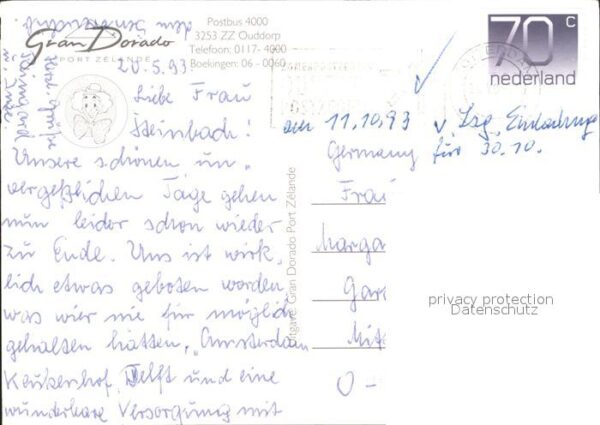 Gran Dorado
PORT ZÉLANDE
Postbus 4000
3253 ZZ Ouddorp
Telefoon: 0117- 4000
Boekingen: 06 - 0060
70 c
nederland
20.5.93
Liebe Frau
Steinbach!
Unsere schönen un-
vergeßlichen Tage gehen
nun leider schon wieder
zu Ende. Uns ist wirk-
lich etwas geboten worden
was wier nie für möglich
gehalten hätten, "Amsterdam
Keukenhof, Delft und eine
wunderbare Versorgung mit
dem
Herzl. Grüße
Reinhard
u. Inge
am 11.10.93 v. Lsg. Einladung
für 30.10.
Germany
Frau
Marga
Gar
Mit
O -
Uitgave: Gran Dorado Port Zélande
privacy protection
Datenschutz